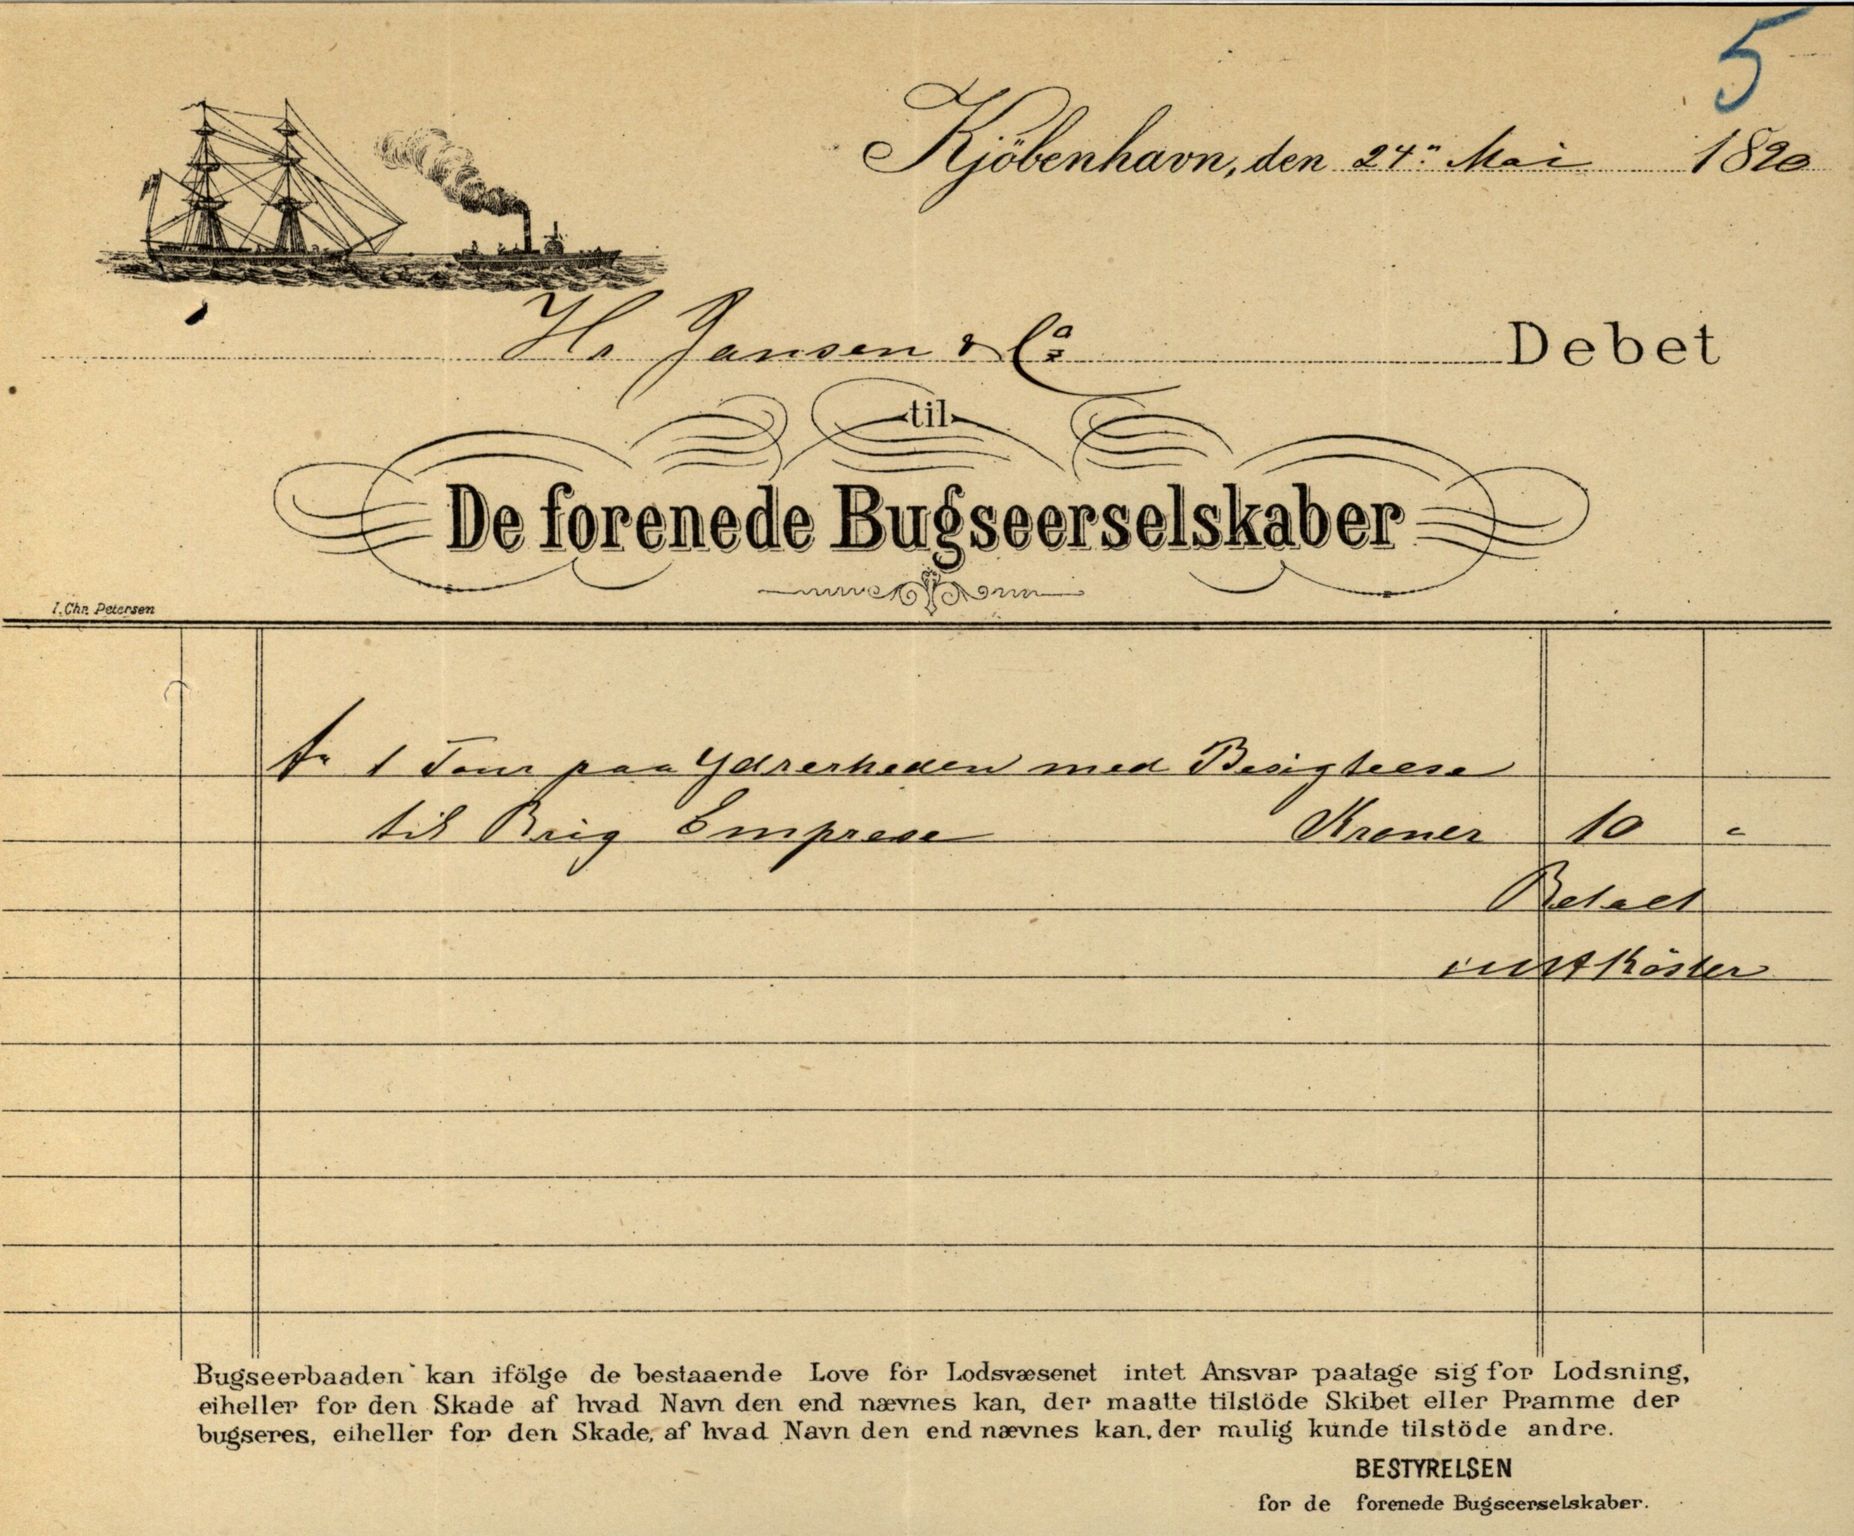 5
Kjöbenhavn, den 24" Mai 1890
Hr Jansen & Co Debet
til
De forenede Bugseerselskaber
I. Chr. Petersen
1 Tour paa Ydrerheden med Besigteese
til Brig Emprese Kroner 10 "
Betalt
Köster
Bugseerbaaden kan ifölge de bestaaende Love for Lodsvæsenet intet Ansvar paatage sig for Lodsning,
eiheller for den Skade af hvad Navn den end nævnes kan, der maatte tilstöde Skibet eller Pramme der
bugseres, eiheller for den Skade, af hvad Navn den end nævnes kan, der mulig kunde tilstöde andre.
BESTYRELSEN
for de forenede Bugseerselskaber.